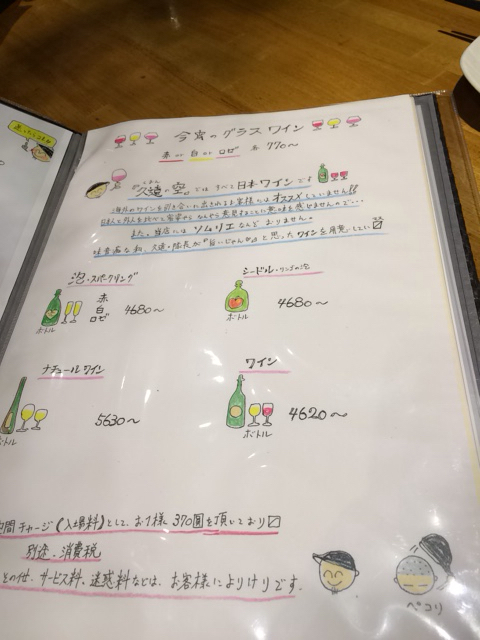 今宵のグラスワイン
赤 or 白 or ロゼ 各 770〜
『久遠の空』では すべて日本ワインです
海外のワインを引き合いに出されるお客様にはオススメしていません!!
また、当店には ソムリエなんぞ おりません。
と思ったワインを用意してい〼
泡・スパークリング
赤
白
ロゼ
4680〜
ボトル
シードル・リンゴの泡
4680〜
ボトル
ナチュールワイン
5630〜
ボトル
ワイン
4620〜
ボトル
間チャージ(入場料)として、お1様 370圓を頂いており〼
別途、消費税
その他、サービス料、迷惑料などは、お客様によりけりです。
ペコリ